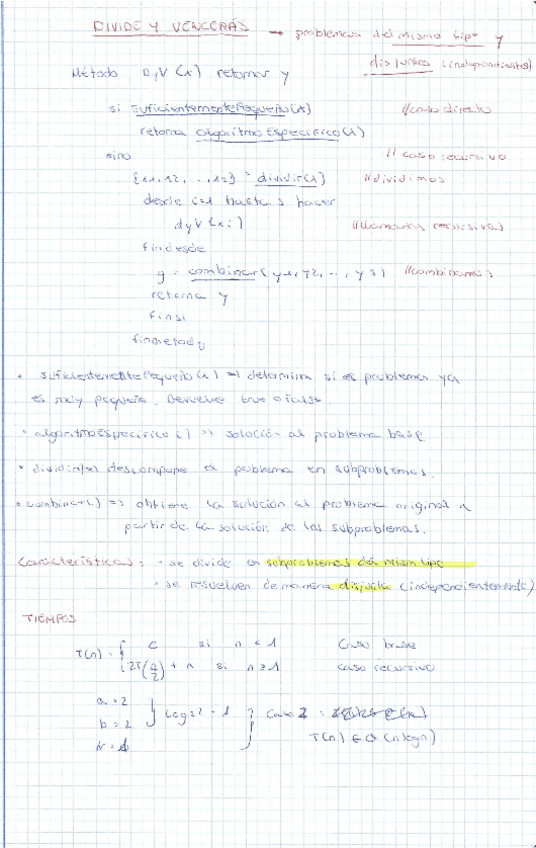 DIVIDE Y VENCERÁS → problemas del mismo tipo y
disjuntos (independientes)
Método DyV (x) retorna y
si SuficientementePequeño(x) //caso directo
retorna algoritmoEspecífico(x)
sino // caso recursivo
{x1, x2, ..., xs} = dividir(x) //dividimos
desde i=1 hasta s hacer
dyV(xi) //llamadas recursivas
findesde
y = combinar(y1, y2, ..., ys) //combinamos
retorna y
finsi
finmetodo
• suficientementePequeño(x) => determina si el problema ya
es muy pequeño. Devuelve true o false.
• algoritmoEspecifico() => solución al problema base.
• dividir(x) descompone el problema en subproblemas.
• combinar() => obtiene la solución al problema original a
partir de la solución de los subproblemas.
Características: • se divide en subproblemas del mismo tipo
• se resuelven de manera disjunta (independientemente)
TIEMPOS
T(n) = { c si n < 1 Caso base
2T(n/2) + n si n ≥ 1 caso recursivo
a = 2
b = 2 } log₂2 = 1 } Caso 2 :
T(n) ∈ Θ(n logn)